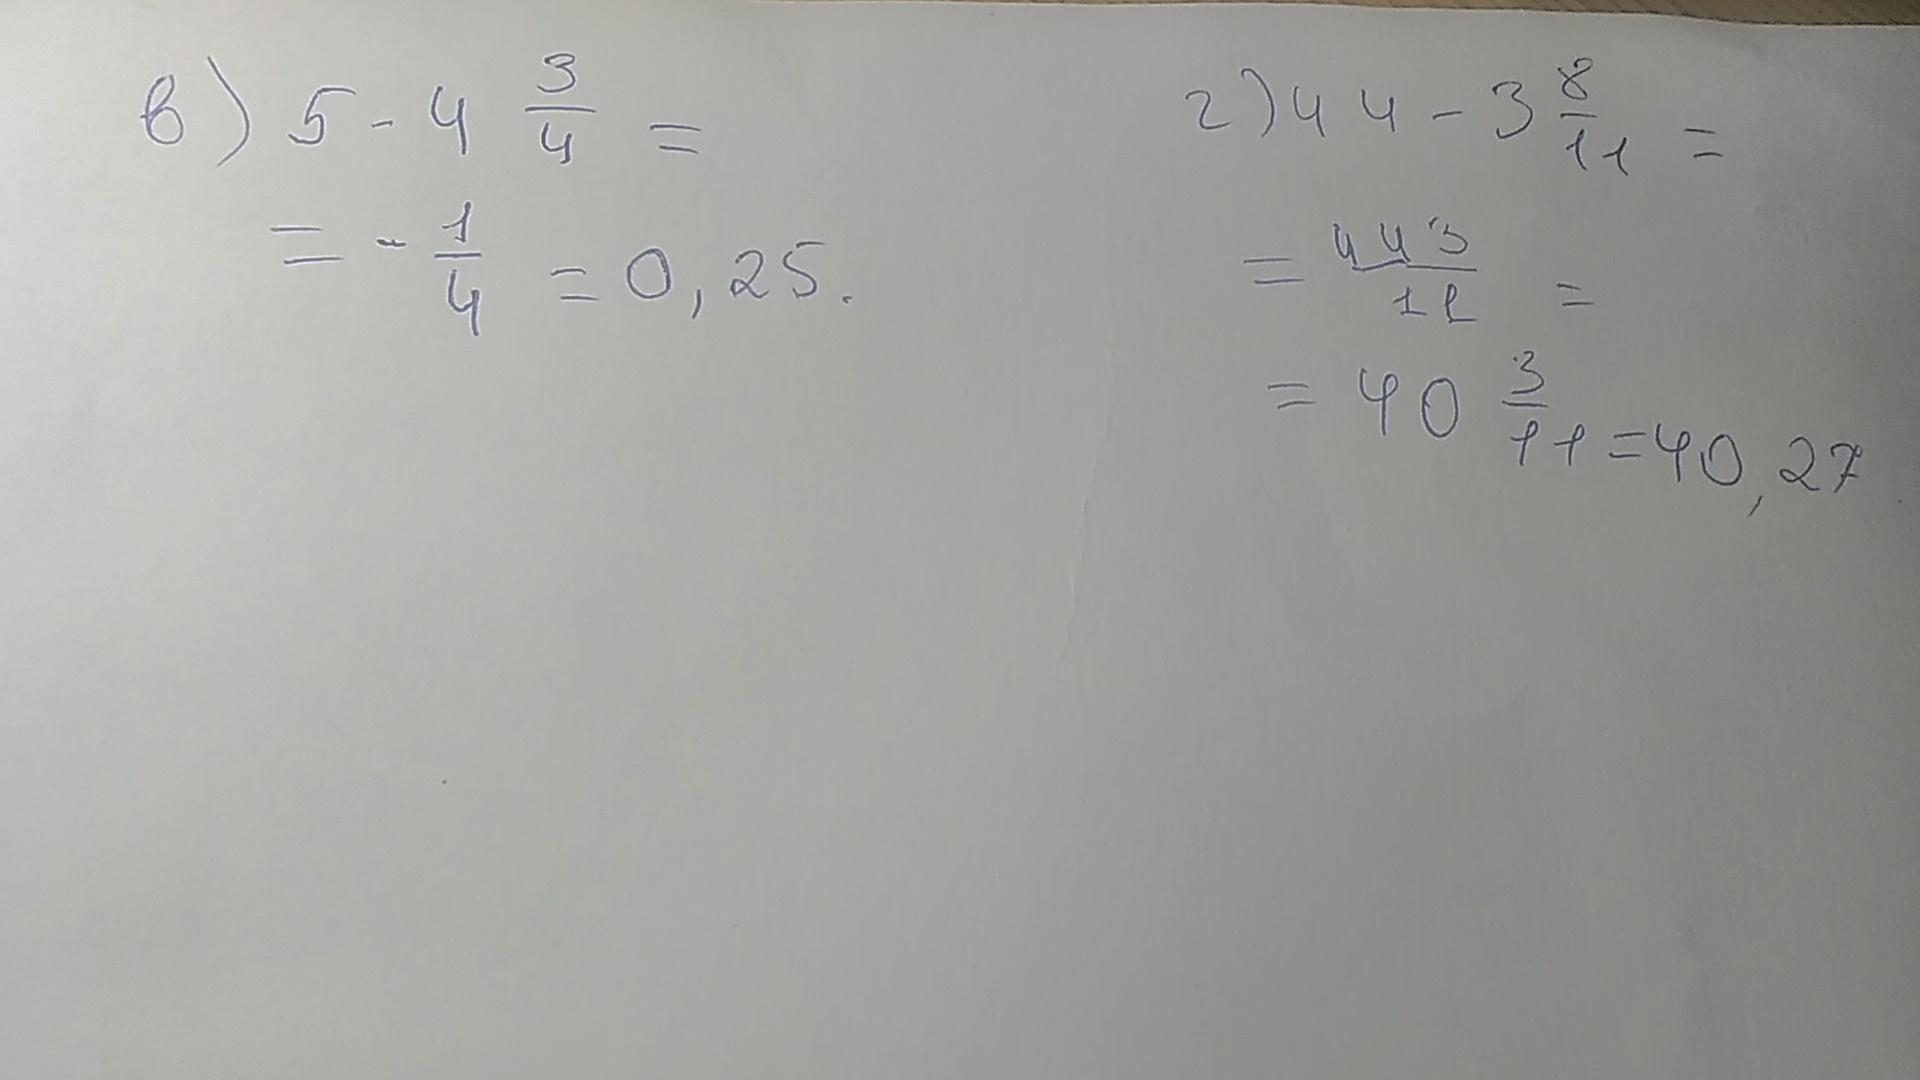 в) 5 - 4 3/4 =
= - 1/4 = 0,25.
г) 44 - 3 8/11 =
= 443/11 =
= 40 3/11 = 40,27